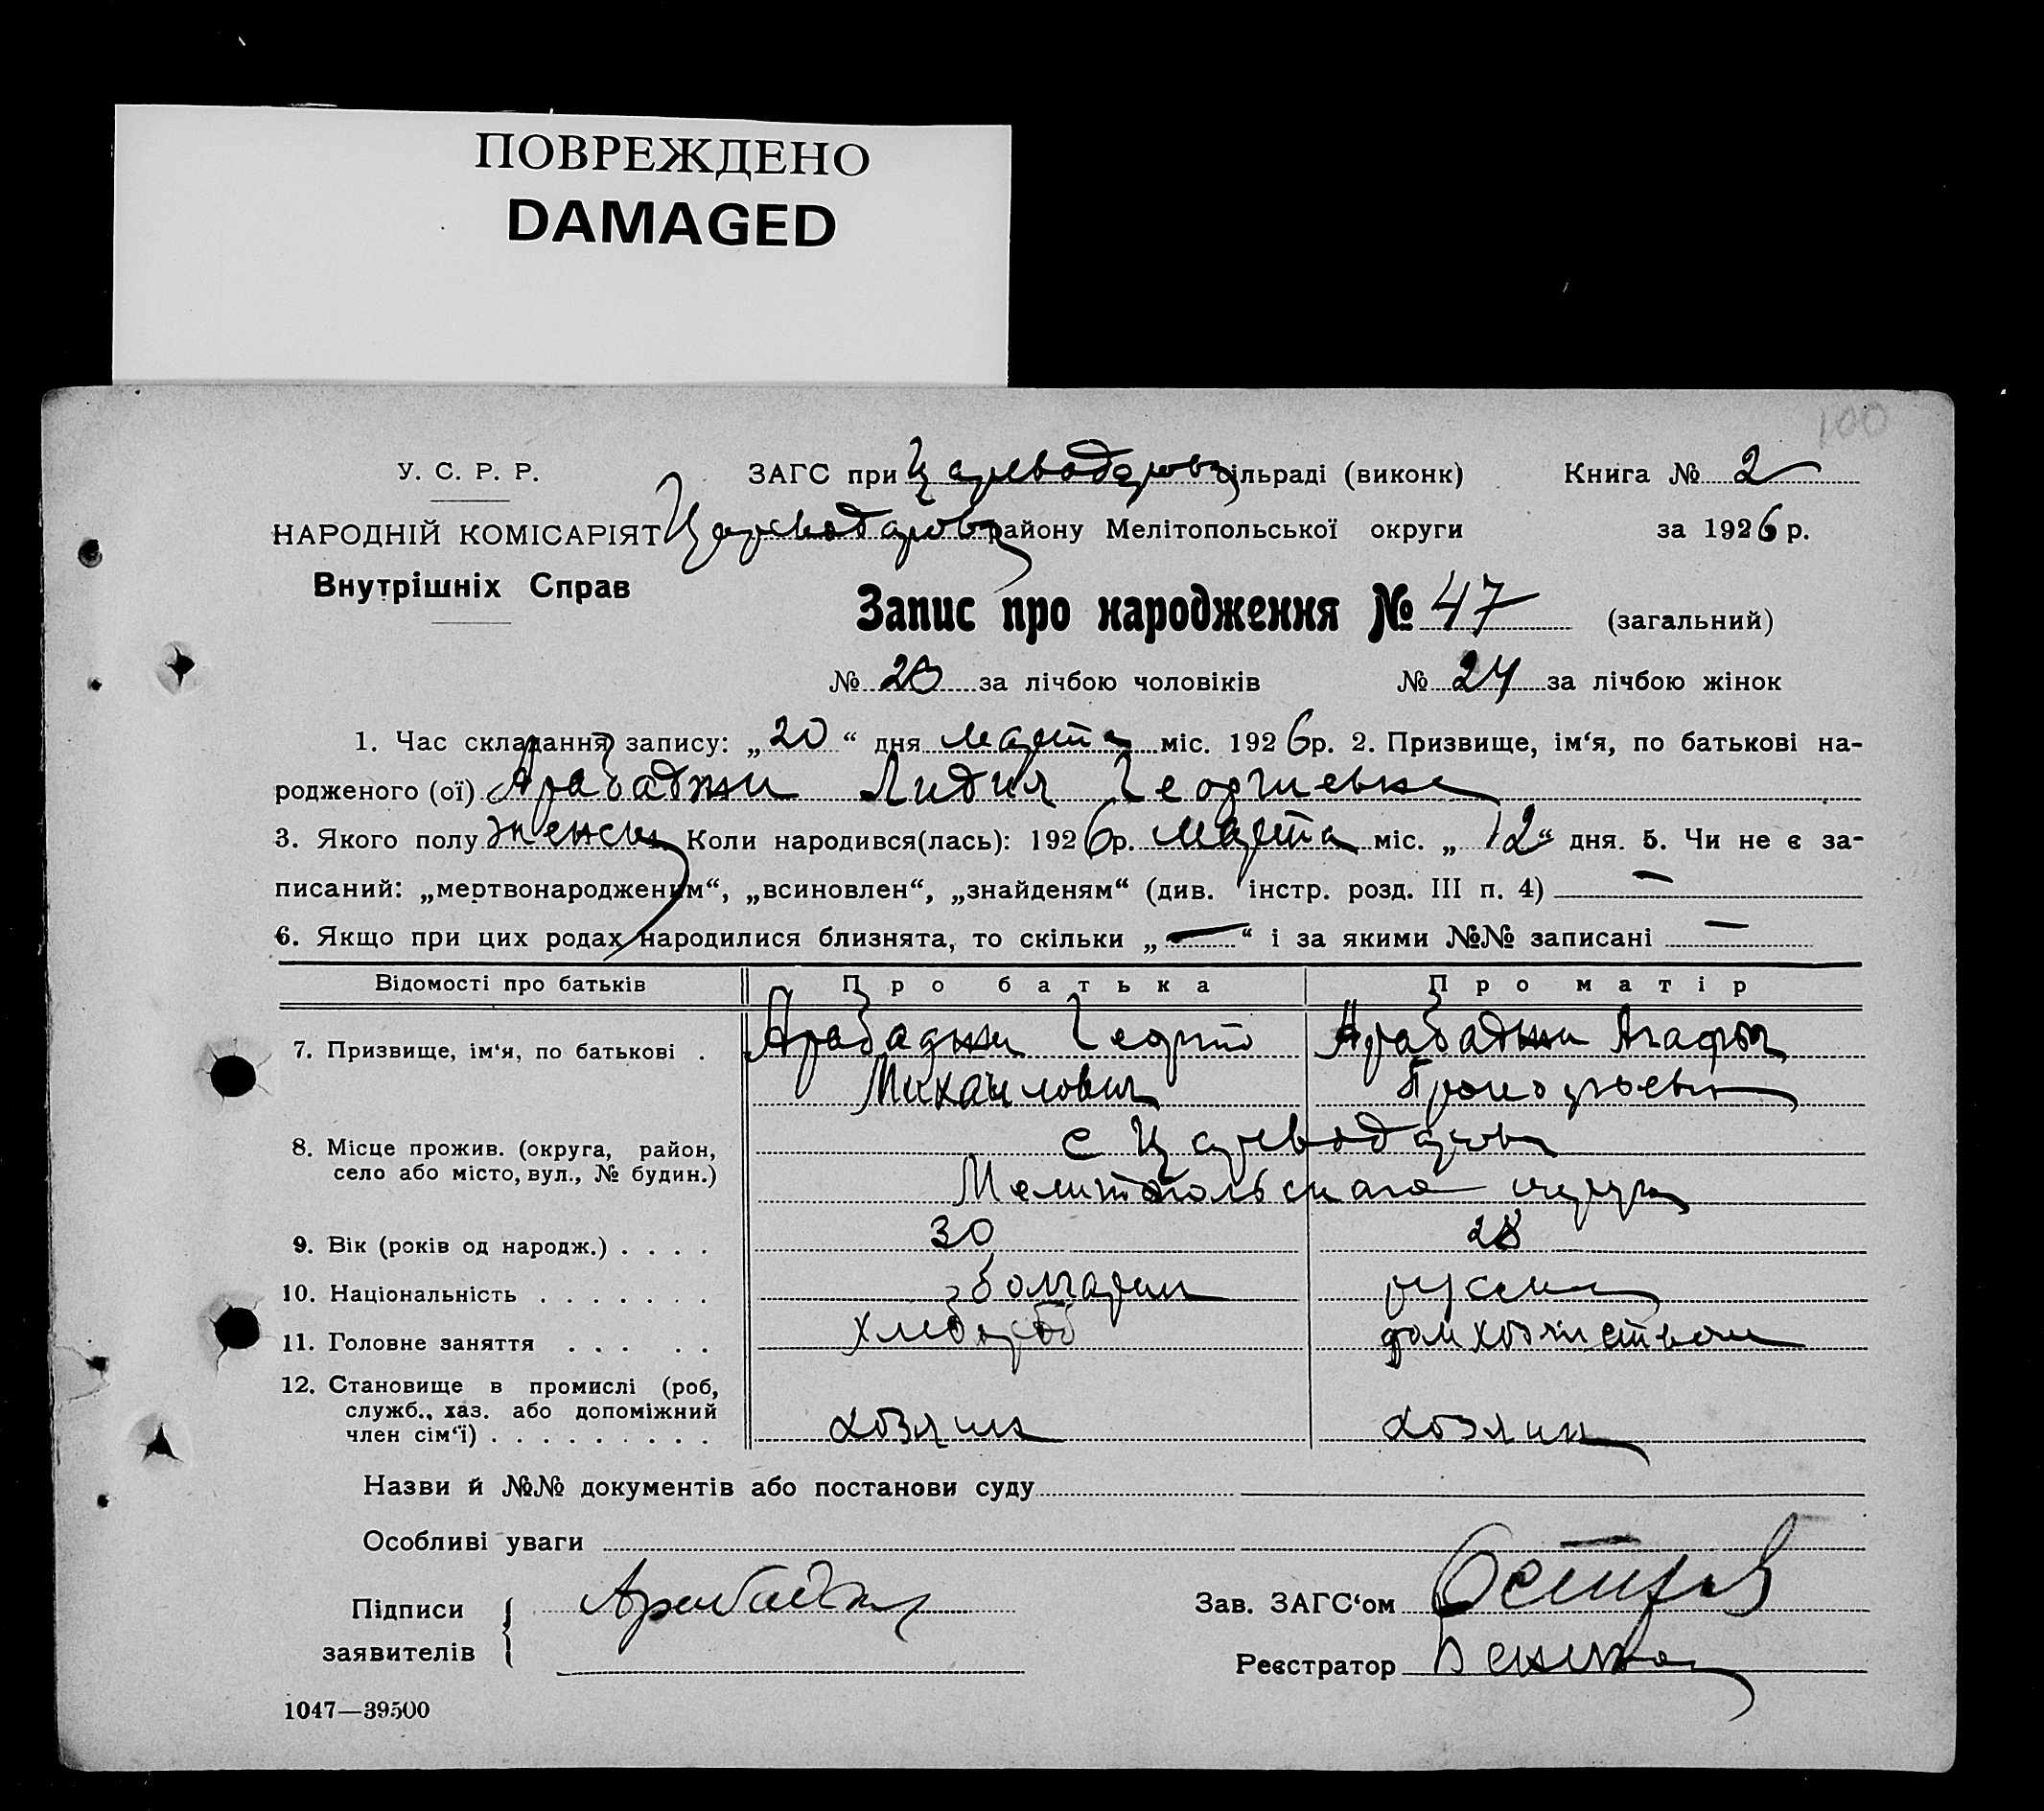 ПОВРЕЖДЕНО
DAMAGED
100
У. С. Р. Р. ЗАГС при Цареводаров сільраді (виконк) Книга № 2
НАРОДНІЙ КОМІСАРІЯТ Цареводаров району Мелітопольської округи за 1926 р.
Внутрішніх Справ
Запис про народження № 47 (загальний)
№ 23 за лічбою чоловіків № 24 за лічбою жінок
1. Час складання запису: „20“ дня марта міс. 1926 р. 2. Призвище, ім‘я, по батькові на-
родженого (ої) Арабаджи Лидия Георгиевна
3. Якого полу женск Коли народився(лась): 1926 р. марта міс. „12“ дня. 5. Чи не є за-
писаний: „мертвонародженим“, „всиновлен“, „знайденям“ (див. інстр. розд. III п. 4) —
6. Якщо при цих родах народилися близнята, то скільки „—“ і за якими №№ записані —
Відомості про батьків Про батька Про матір
7. Призвище, ім‘я, по батькові . Арабаджи Георгий Арабаджи Агафья
Михайлович Прокофьевн
8. Місце прожив. (округа, район, с Цареводаров
село або місто, вул., № будин.) Мелитопольскаго округа
9. Вік (років од народж.) . . . . 30 28
10. Національність . . . . . . . болгарин русская
11. Головне заняття . . . . . хлебороб домхозяйством
12. Становище в промислі (роб,
служб., хаз. або допоміжний
член сім‘ї) . . . . . . . . . хозяин хозяин
Назви й №№ документів або постанови суду
Особливі уваги
Підписи Арабаджи Зав. ЗАГС‘ом
заявителів Реєстратор
1047—39500